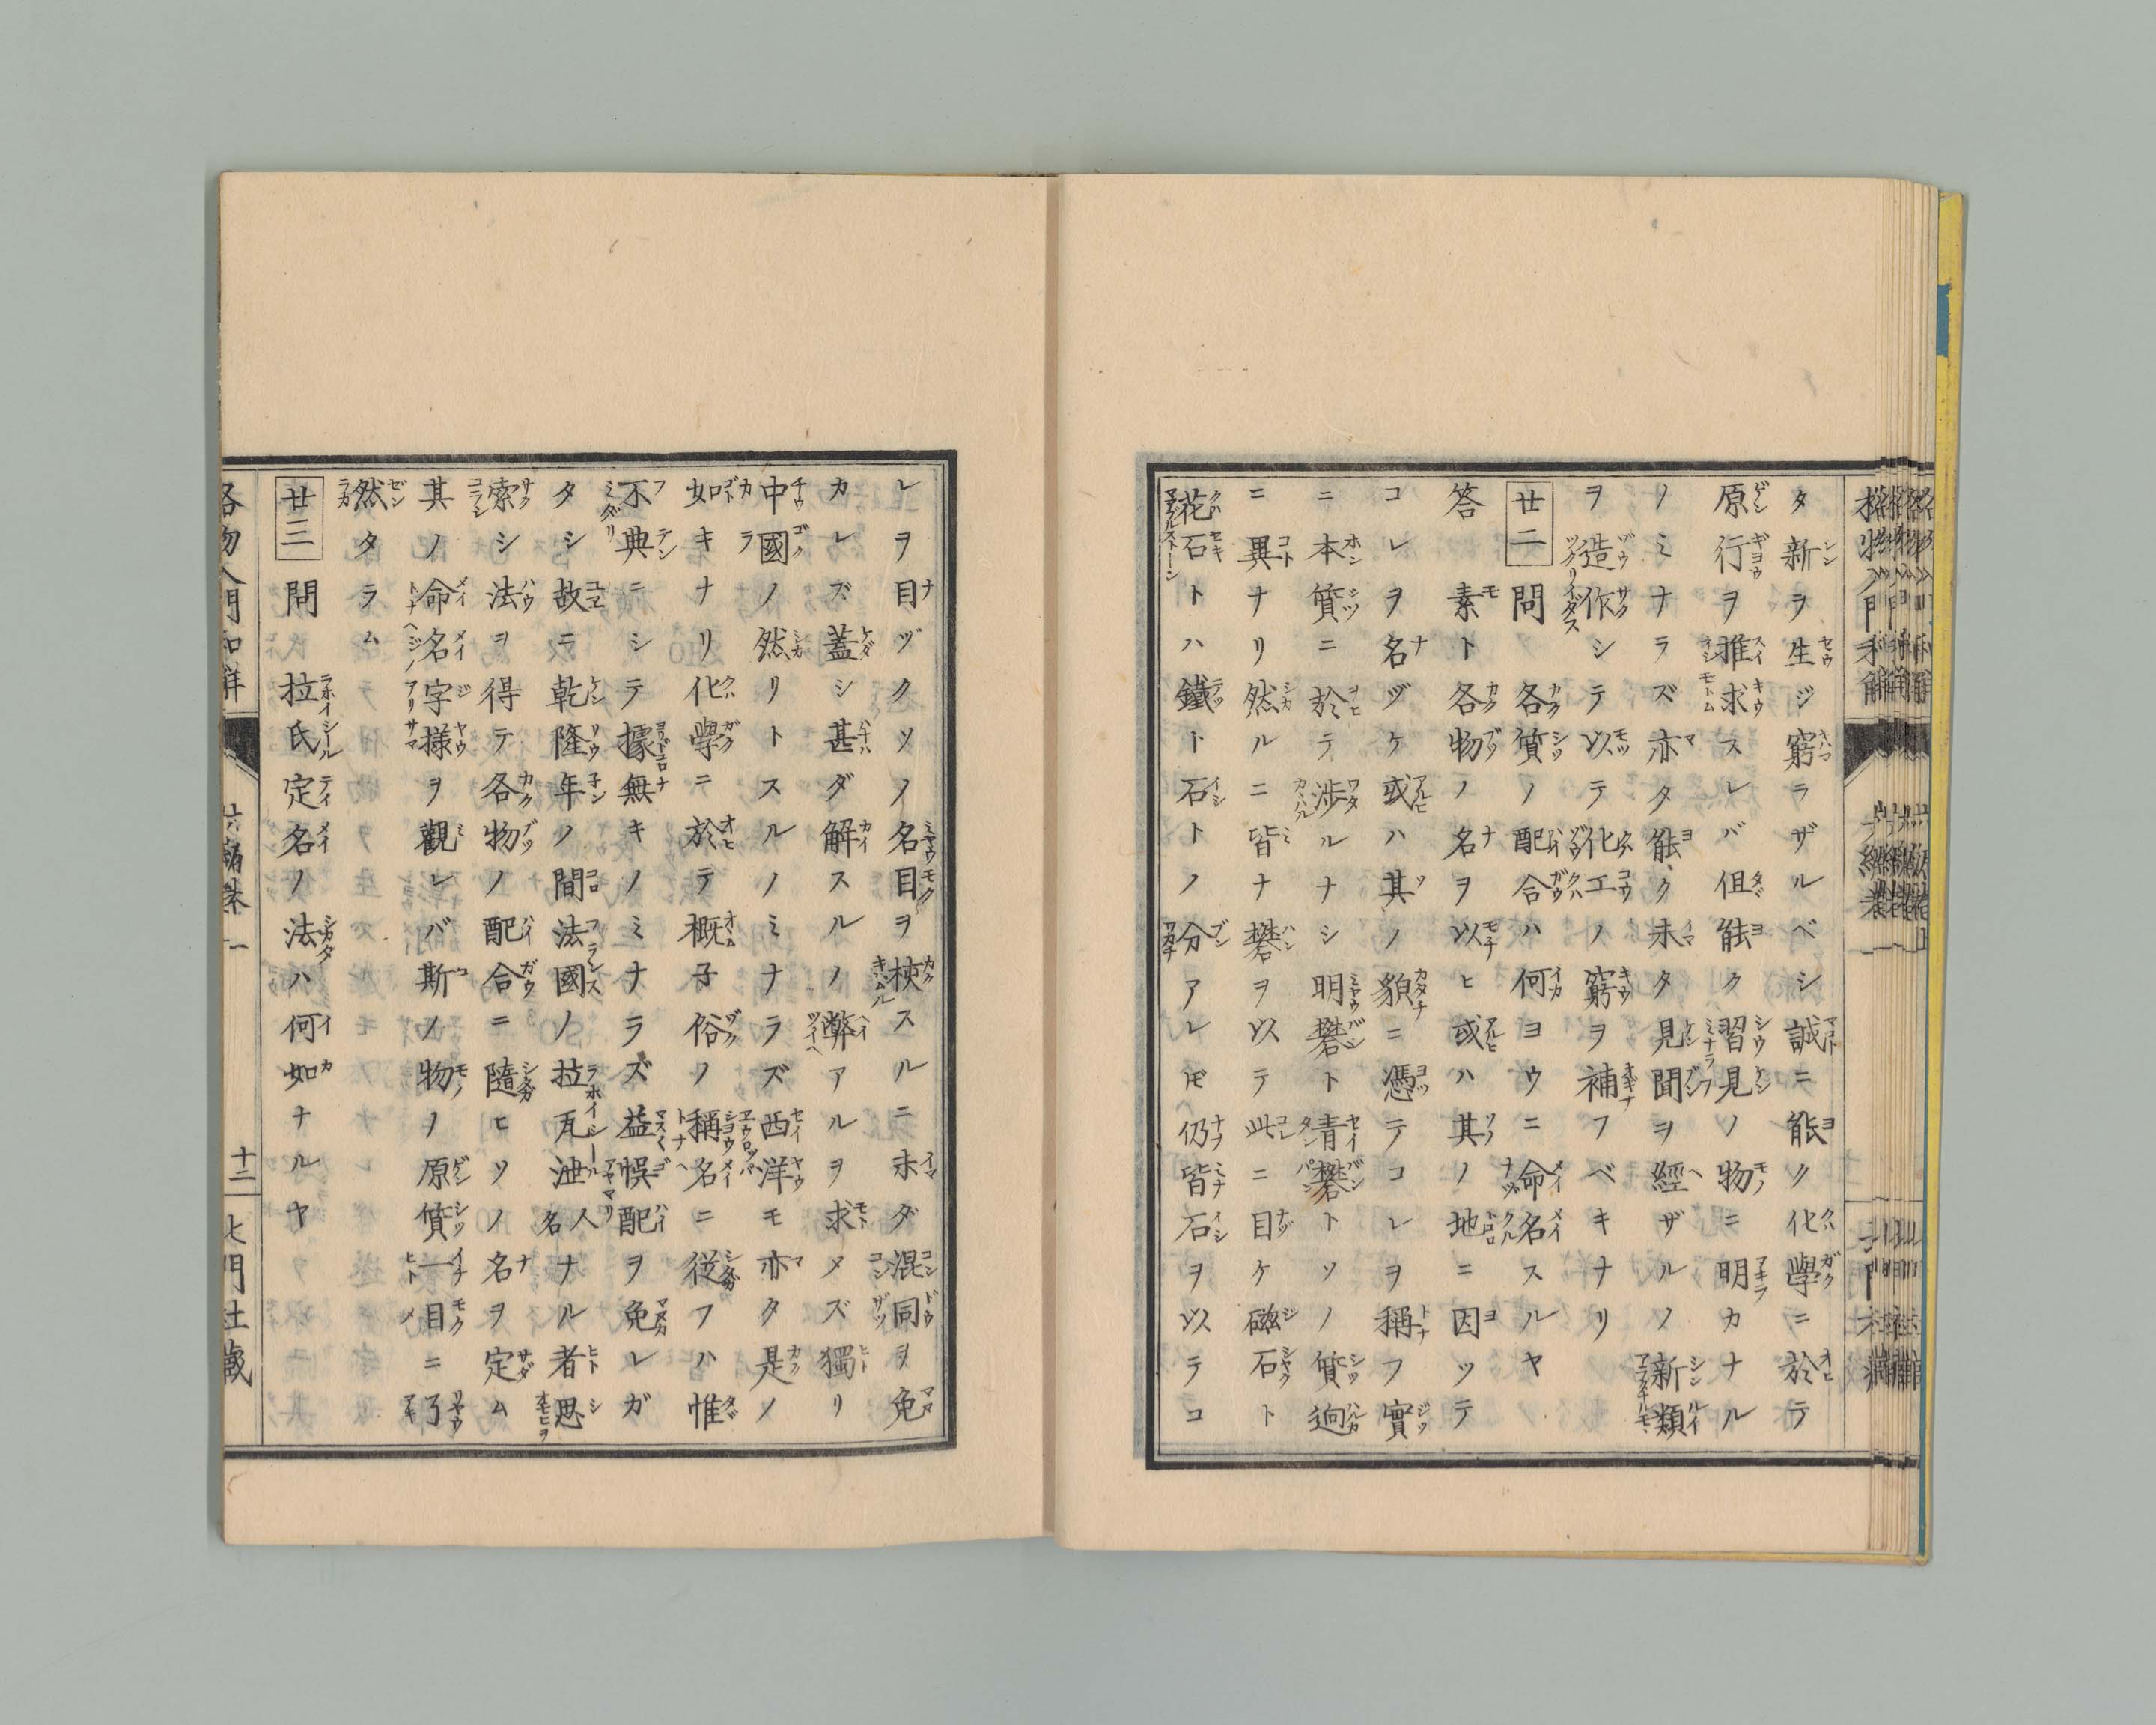 タ新ヲ生ジ窮ラザルベシ誠ニ能ク化學ニ於テ
原行ヲ推求スレバ但能ク習見ノ物ニ明カナル
ノミナラズ亦タ能ク未タ見聞ヲ經ザルノ新類
ヲ造作シテ以テ化工ノ窮ヲ補フベキナリ
廿二 問 各質ノ配合ハ何ヨウニ命名スルヤ
答 素ト各物ノ名ヲ以ヒ或ハ其ノ地ニ因ッテ
コレヲ名ヅケ或ハ其ノ貌ニ憑テコレヲ稱フ實
ニ本質ニ於テ渉ルナシ明礬ト青礬トソノ質迥
ニ異ナリ然ルニ皆ナ礬ヲ以テ此ニ目ケ磁石ト
花石トハ鐵ト石トノ分アレ𪜈仍皆石ヲ以テコ
レヲ目ヅクソノ名目ヲ梜スルニ未ダ混同ヲ免
カレズ蓋シ甚ダ解スルノ弊アルヲ求メズ獨リ
中國ノ然リトスルノミナラズ西洋モ亦タ是ノ
如キナリ化學ニ於テ概子俗ノ稱名ニ從フハ惟
不典ニシテ據無キノミナラズ益悞配ヲ免レガ
タシ故ニ乾隆年ノ間法國ノ拉瓦泄人名ナル者思
索シ法ヲ得テ各物ノ配合ニ隨ヒソノ名ヲ定ム
其ノ命名字樣ヲ觀レバ斯ノ物ノ原質一目ニ了
然タラム
廿三 問 拉氏定名ノ法ハ何如ナルヤ
十二